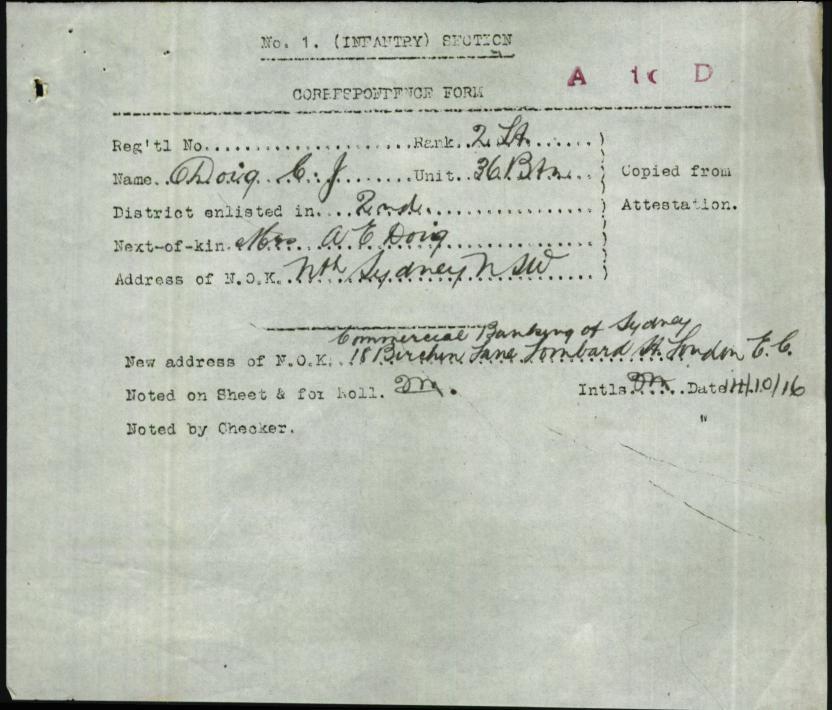 No. 1. (INFANTRY) SECTION
A 10 D
CORRESPONDENCE FORM
Reg'tl No......................Rank. 2 Lt. ......)
Name. Doig C. J ........Unit. 36 Btn. ..) Copied from
District enlisted in.... 2nd. ................) Attestation.
Next-of-kin. Mrs A E Doig ...............)
Address of N.O.K. Nth Sydney NSW ......)
Commercial Banking of Sydney
New address of N.O.K. 18 Birchin Lane Lombard St. London E.C.
Noted on Sheet & for Roll.
Intls. ......Date /10/16
Noted by Checker. "